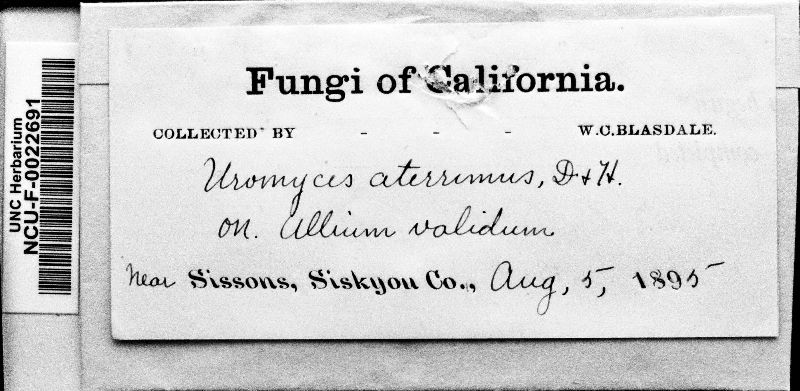 UNC Herbarium
NCU-F-0022691
Fungi of California.
COLLECTED BY - - - W.C.BLASDALE.
Uromyces aterrimus, D & H.
on. Allium validum
near Sissons, Siskyou Co., Aug, 5, 1895